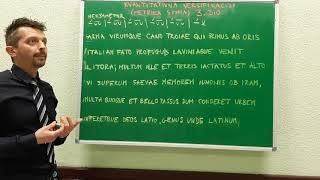 KVANTITATIVNA VERSIFIKACIJA
(METRIČKA SHEMA) 3. DIO
HEKSAMETAR
ARMA VIRUMQUE CANO TROIAE QUI PRIMUS AB ORIS
ITALIAM FATO PROFUGUS LAVINIAQUE VENIT
LITORA, MULTUM ILLE ET TERRIS IACTATUS ET ALTO
VI SUPERUM SAEVAE MEMOREM IUNONIS OB IRAM,
MULTA QUOQUE ET BELLO PASSUS DUM CONDERET URBEM
INFERRETQUE DEOS LATIO, GENUS UNDE LATINUM,